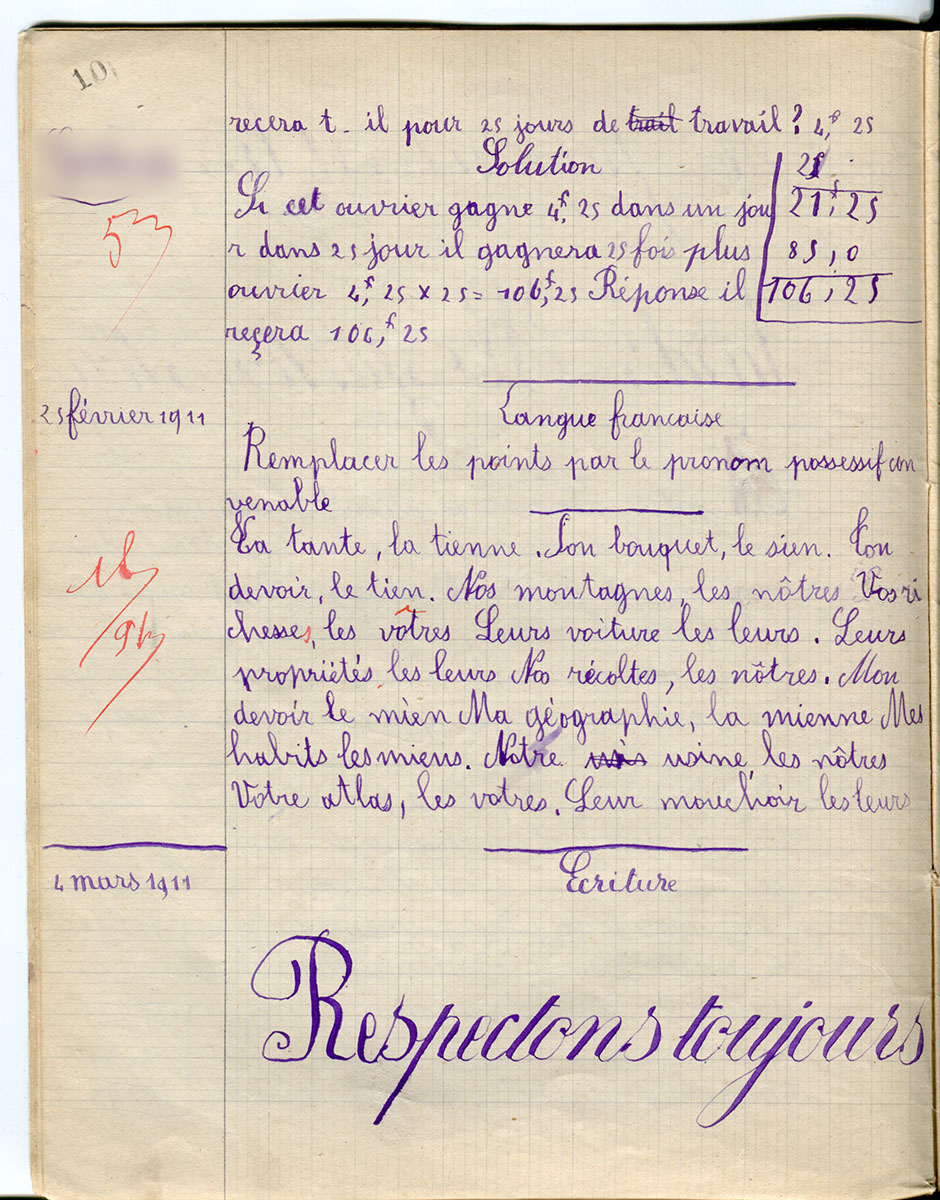 10
recera t- il pour 25 jours de trait travail ? 4,f 25
Solution
25
Si cet ouvrier gagne 4,f 25 dans un jou
21,f 25
r dans 25 jour il gagnera 25 fois plus
85,0
ouvrier 4,f 25 x 25 = 106,f 25 Réponse il
106,25
reçera 106,f 25
53
25 février 1911
Langue francaise
Remplacer les points par le pronom possessif con
venable
Ta tante, la tienne. Son bouquet, le sien. Ton
devoir, le tien. Nos montagnes, les nôtres Vos ri
chesses, les vôtres Leurs voiture les leurs. Leurs
propriétés les leurs Nos récoltes, les nôtres. Mon
devoir le mien Ma géographie, la mienne Mes
habits les miens. Notre usine, les nôtres
Votre atlas, les votres. Leur mouchoir les leurs
4 mars 1911
Ecriture
Respectons toujours